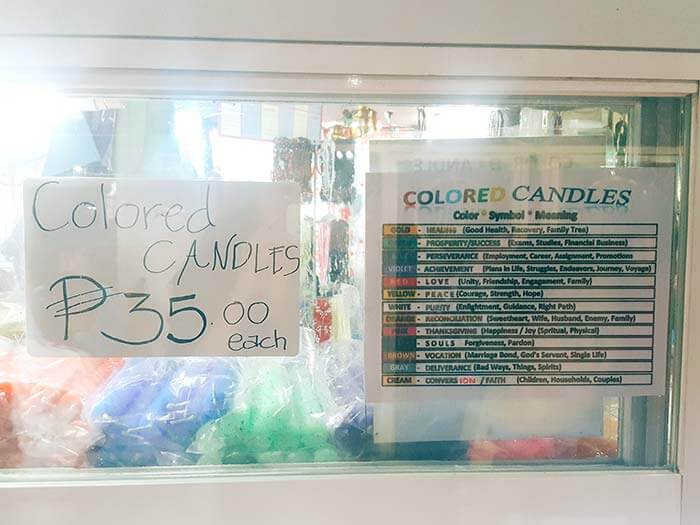 Colored
CANDLES
₱35.00
each
COLORED CANDLES
Color * Symbol * Meaning
GOLD - HEALING (Good Health, Recovery, Family Tree)
- PROSPERITY/SUCCESS (Exams, Studies, Financial Business)
- PERSEVERANCE (Employment, Career, Assignment, Promotions
VIOLET - ACHIEVEMENT (Plans in Life, Struggles, Endeavors, Journey, Voyage)
RED - LOVE (Unity, Friendship, Engagement, Family)
YELLOW - PEACE (Courage, Strength, Hope)
WHITE - PURITY (Enlightment, Guidance, Right Path)
ORANGE - RECONCILIATION (Sweetheart, Wife, Husband, Enemy, Family)
- THANKSGIVING (Happiness / Joy (Spritual, Physical)
- SOULS Forgiveness, Pardon)
BROWN - VOCATION (Marriage Bond, God's Servant, Single Life)
GRAY - DELIVERANCE (Bad Ways, Things, Spirits)
CREAM - CONVERSION / FAITH (Children, Households, Couples)